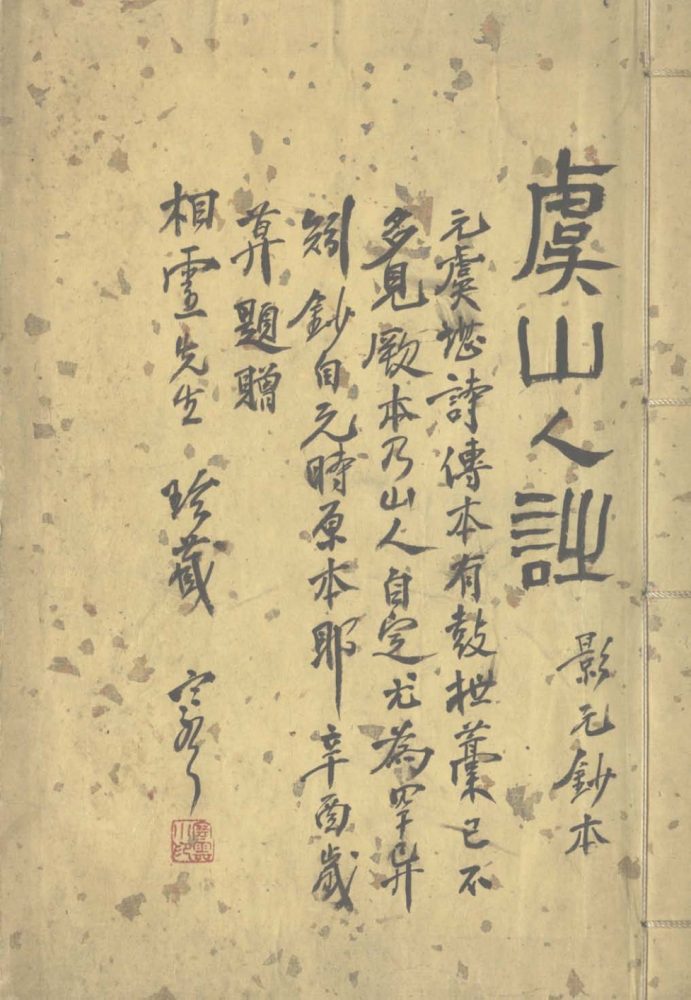 虞山人詩
影元鈔本
元虞堪詩傳本有鼓枻藁已不
多見厥本乃山人自定尤為罕弆
矧鈔自元時原本耶辛酉歲
莫題贈
相雲先生珍藏